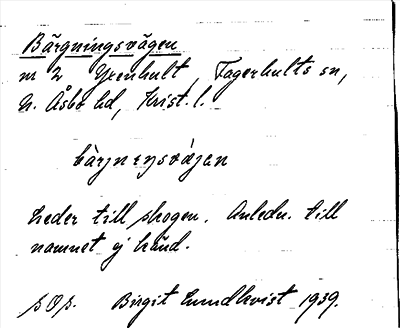 Bärgningsvägen
m 2 Yxenhult, Fagerhults sn,
N. Åsbo hd, Krist. l.
leder till skogen. Anledn. till
namnet ej känd.
Birgit Lundkvist 1939.